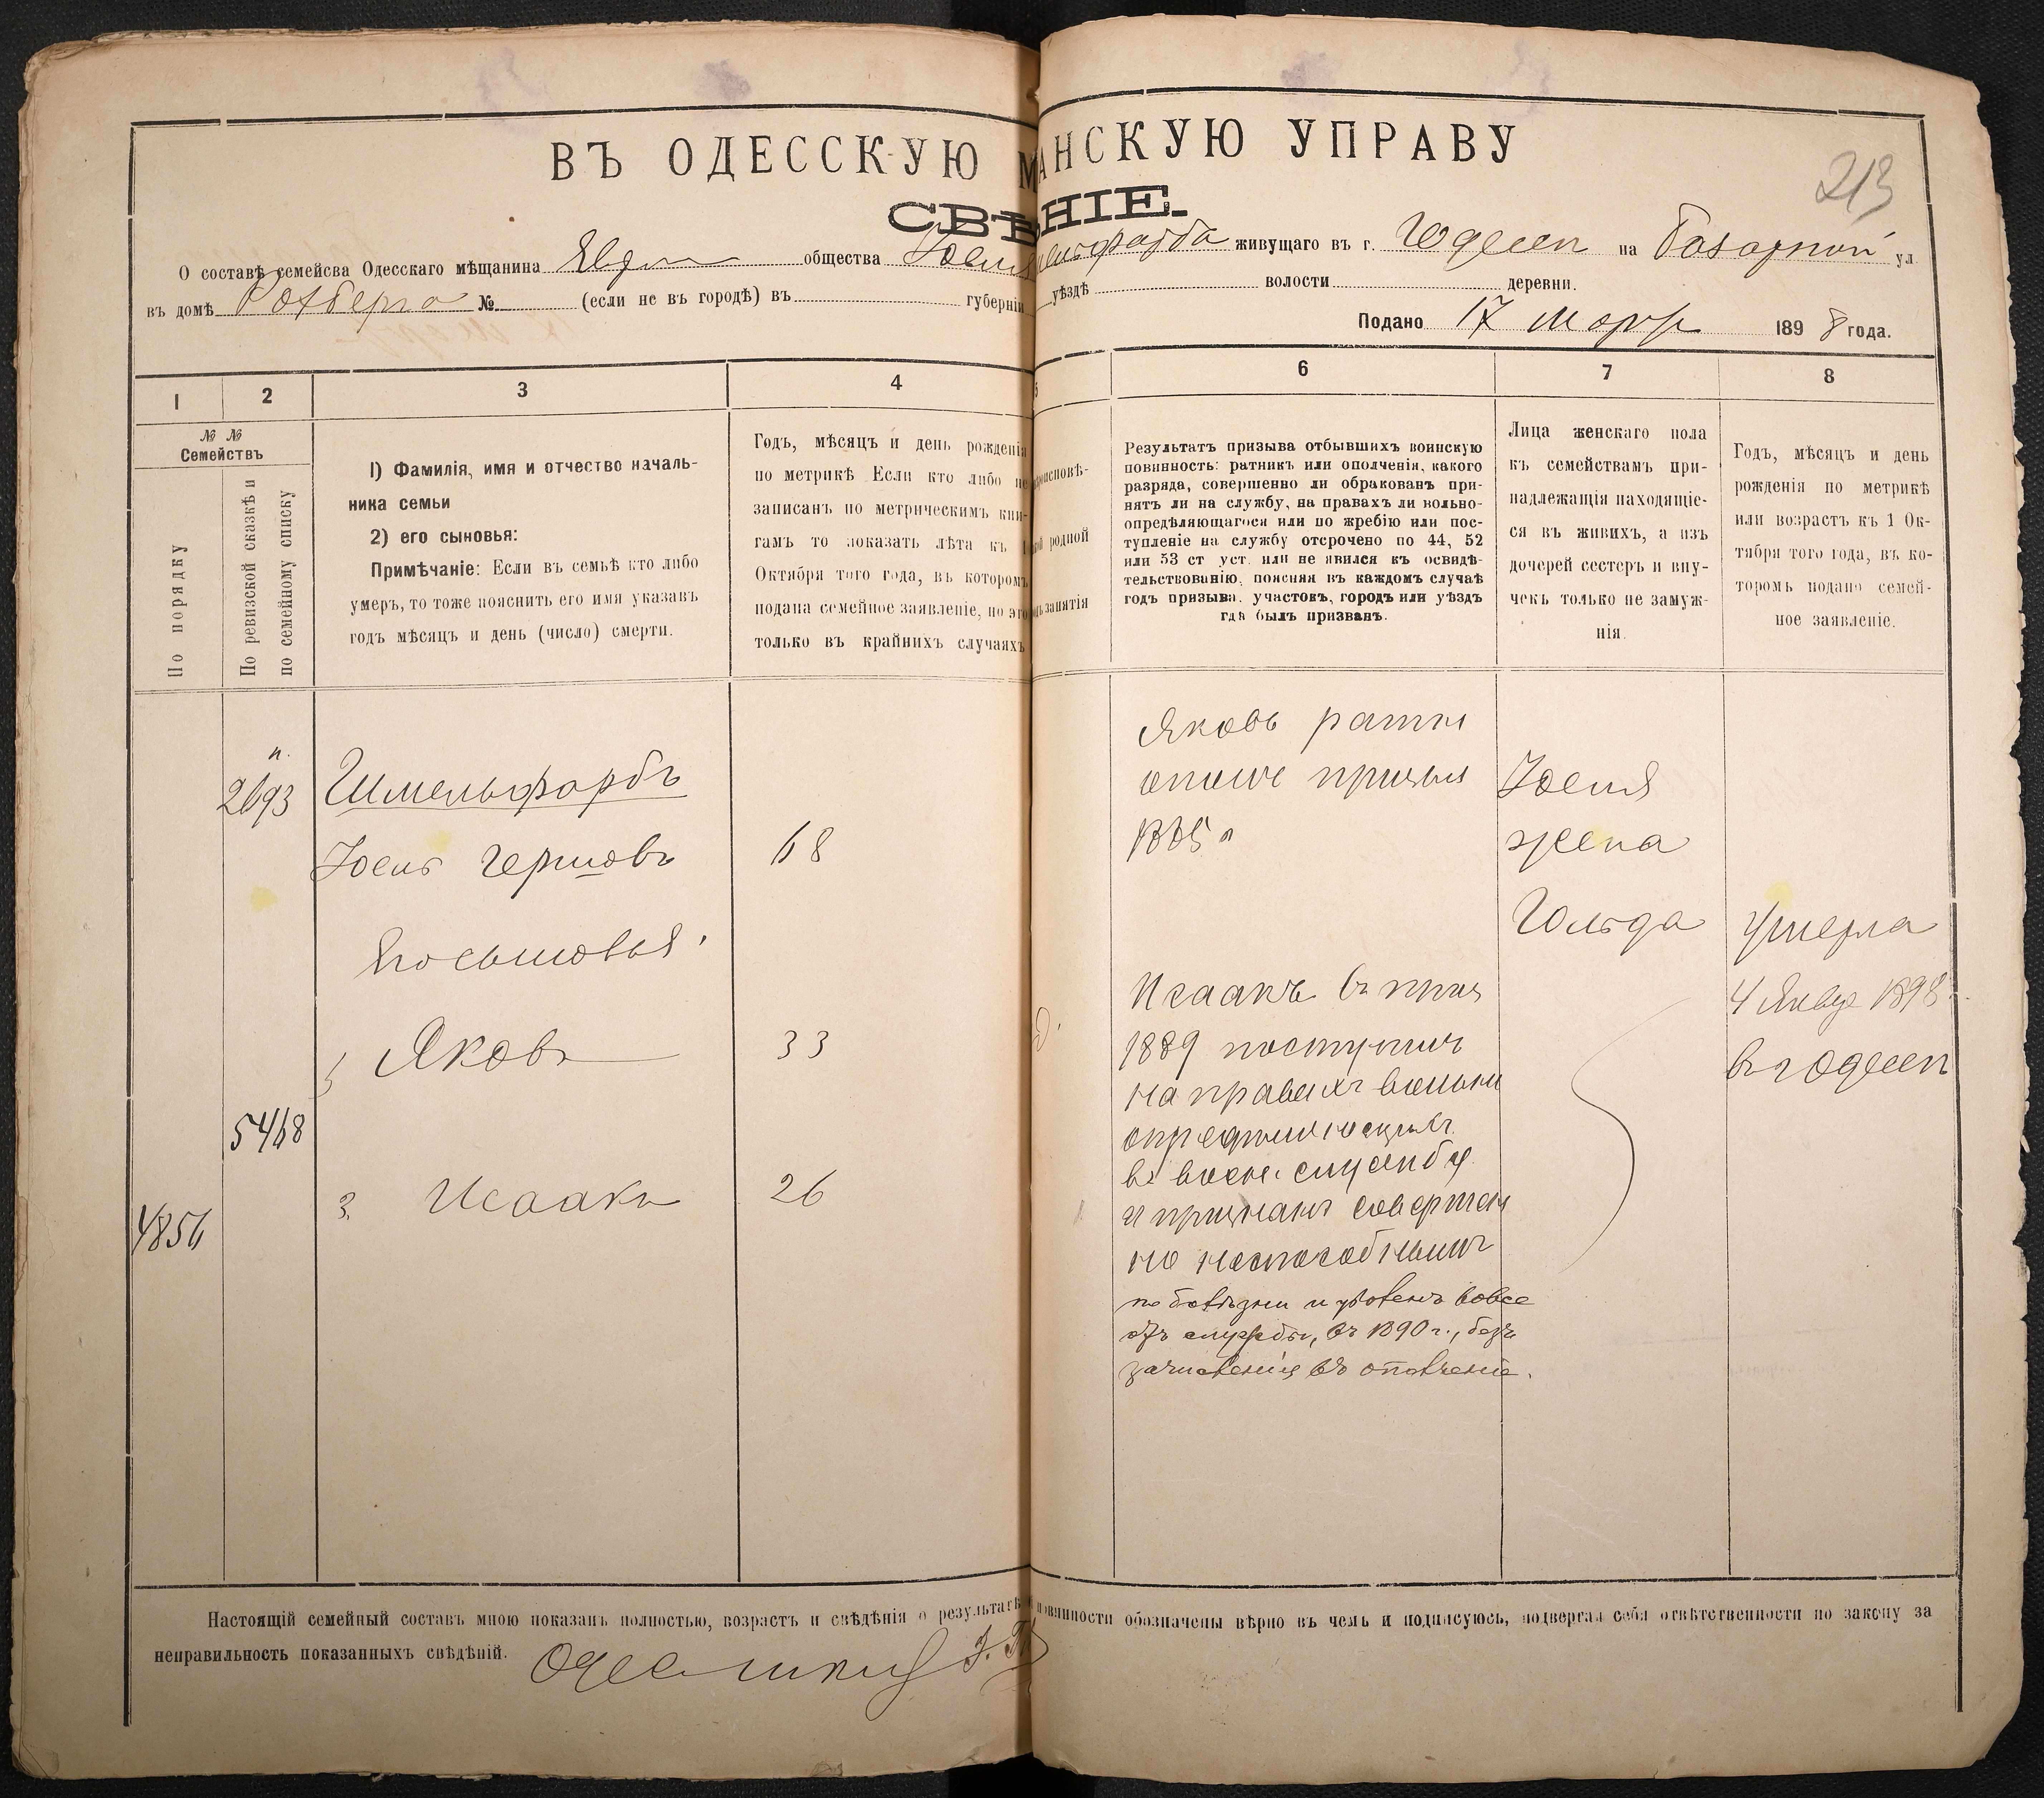 213
ВЪ ОДЕССКУЮ МАНСКУЮ УПРАВУ
СВѢНІЕ.
О составѣ семейсва Одесскаго мѣщанина общества живущаго въ г. Одессѣ на Базарной ул
въ домѣ Ротберга № (если не въ городѣ) въ губерніи уѣздѣ волости деревни.
Подано 17 Марта 1898 года.
1 2 3 4 5 6 7 8
№ №
Семействъ
По порядку
По ревизской сказкѣ и
по семейному списку
1) Фамилія, имя и отчество началь-
ника семьи
2) его сыновья:
Примѣчаніе: Если въ семьѣ кто либо
умеръ, то тоже пояснить его имя указавъ
годъ мѣсяцъ и день (число) смерти.
Годъ, мѣсяцъ и день рожденія
по метрикѣ Если кто либо не
записанъ по метрическимъ кни-
гамъ то показать лѣта къ 1
Октября того года, въ которомъ
подана семейное заявленіе, но это
только въ крайнихъ случаяхъ
родной
занятія
Результатъ призыва отбывшихъ воинскую
повинность: ратникъ или ополченія, какого
разряда, совершенно ли обракованъ при-
нятъ ли на службу, на правахъ ли вольно-
опредѣляющагося или по жребію или пос-
тупленіе на службу отсрочено по 44, 52
или 53 ст уст. или не явился къ освидѣ-
тельствованію, поясняя въ каждомъ случаѣ
годъ призыва, участовъ, городъ или уѣздъ
гдѣ былъ призванъ.
Лица женскаго пола
къ семействамъ при-
надлежащія находящіе-
ся въ живихъ, а изъ
дочерей сестеръ и вну-
чекъ только не замуж-
нія.
Годъ, мѣсяцъ и день
рожденія по метрикѣ
или возрастъ къ 1 Ок-
тября того года, въ ко-
торомъ подано семей-
ное заявленіе.
н.
2693 Шмельфарбъ
Іось Гершовъ 68
Яковъ 33
5468
3. Исаакъ 26
4856
Яковъ ратн
ополч призыв
Исаакъ въ приз
1889 поступилъ
на правахъ вольно
въ воен. службу
и признанъ совершен
но неспособнымъ
по болѣзни и уволенъ вовсе
отъ службы, въ 1890 г., безъ
зачисленія въ ополченіе.
жена
Гольда
умерла
4 Январ 1898
въ г Одессѣ
Настоящій семейный составъ мною показанъ полностью, возрастъ и свѣдѣнія о результатѣ повинности обозначены вѣрно въ чемъ и подписуюсь, подвергая себя отвѣтственности по закону за
неправильность показанныхъ свѣдѣній.